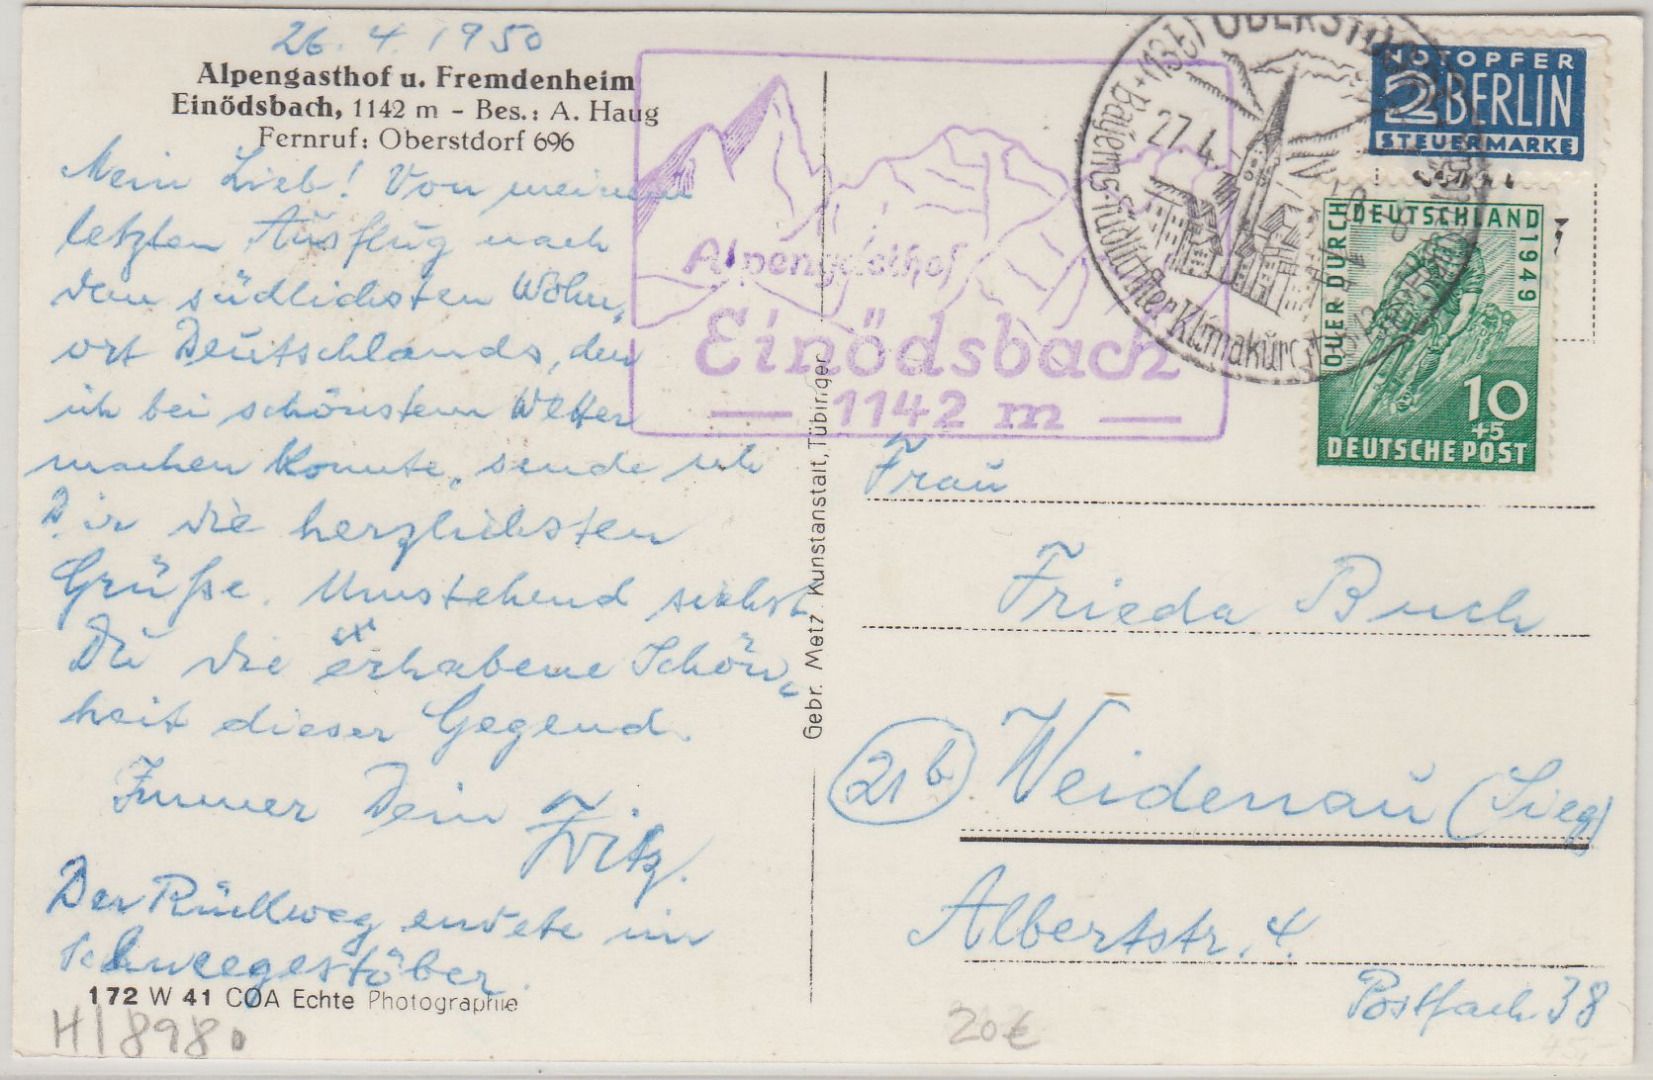 26. 4. 1950
Alpengasthof u. Fremdenheim
Einödsbach, 1142 m - Bes.: A. Haug
Fernruf: Oberstdorf 696
Mein Lieb! Von meinem
letzten Ausflug nach
dem südlichsten Wohn-
ort Deutschlands, den
ich bei schönstem Wetter
machen konnte, sende ich
Dir die herzlichsten
Grüße. Umstehend siehst
Du die erhabene Schön-
heit dieser Gegend.
Immer Dein Fritz.
Der Rückweg endete im
Schneegestöber.
172 W 41 COA Echte Photographie
H18980
Gebr. Metz Kunstanstalt, Tübingen
Alpengasthof
Einödsbach
— 1142 m —
(13b) OBERSTDORF
27.4.
Bayerns südlichster Klimakurort
NOTOPFER
2 BERLIN
STEUERMARKE
QUER DURCH
DEUTSCHLAND
1949
10
+5
DEUTSCHE POST
Frau
Frieda Buch
21b Weidenau (Sieg)
Albertstr. 4.
Postfach 38
20€